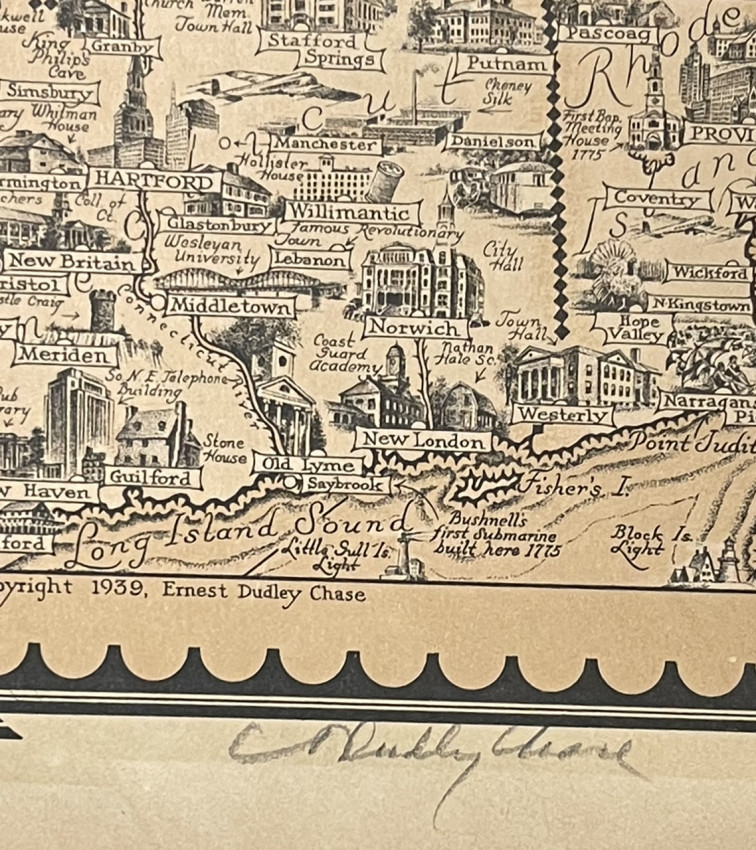 Church
Mem.
Town Hall
King
Philip's
Cave
Granby
Stafford
Springs
Putnam
Pascoag
Rhode
Simsbury
Whitman
House
c u t
Cheney
Silk
First Bap.
Meeting
House
1775
Manchester
Danielson
Hollister
House
HARTFORD
Coll. of
Ct.
Willimantic
Coventry
Is
Glastonbury
Famous Revolutionary
Town
Wesleyan
University
Lebanon
City
Hall
New Britain
Wickford
Middletown
N. Kingstown
Connecticut River
Norwich
Town
Hall
Hope
Valley
Coast
Guard
Academy
Nathan
Hale Sc.
Meriden
So. N. E. Telephone
Building
Westerly
Stone
House
New London
Point Judit
Guilford
Old Lyme
Saybrook
Fisher's I.
w Haven
Long Island Sound
Bushnell's
first Submarine
built here 1775
Block Is.
Light
ford
Little Gull Is.
Light
pyright 1939, Ernest Dudley Chase
Dudley Chase